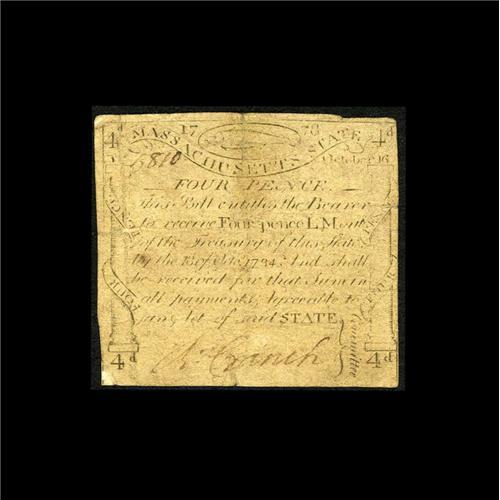 4d 17 78 4d
MASSACHUSETTS STATE
6810 October 16
FOUR PENCE
This Bill entitles the Bearer
to receive Four pence L.M. out
of the Treasury of this State
by the 18 of Oct. 1784. And shall
be received for that Sum in
all payments, Agreeable to
an Act of said STATE.
FOUR PENCE
FOUR PENCE
Committee
4d R Cranch 4d